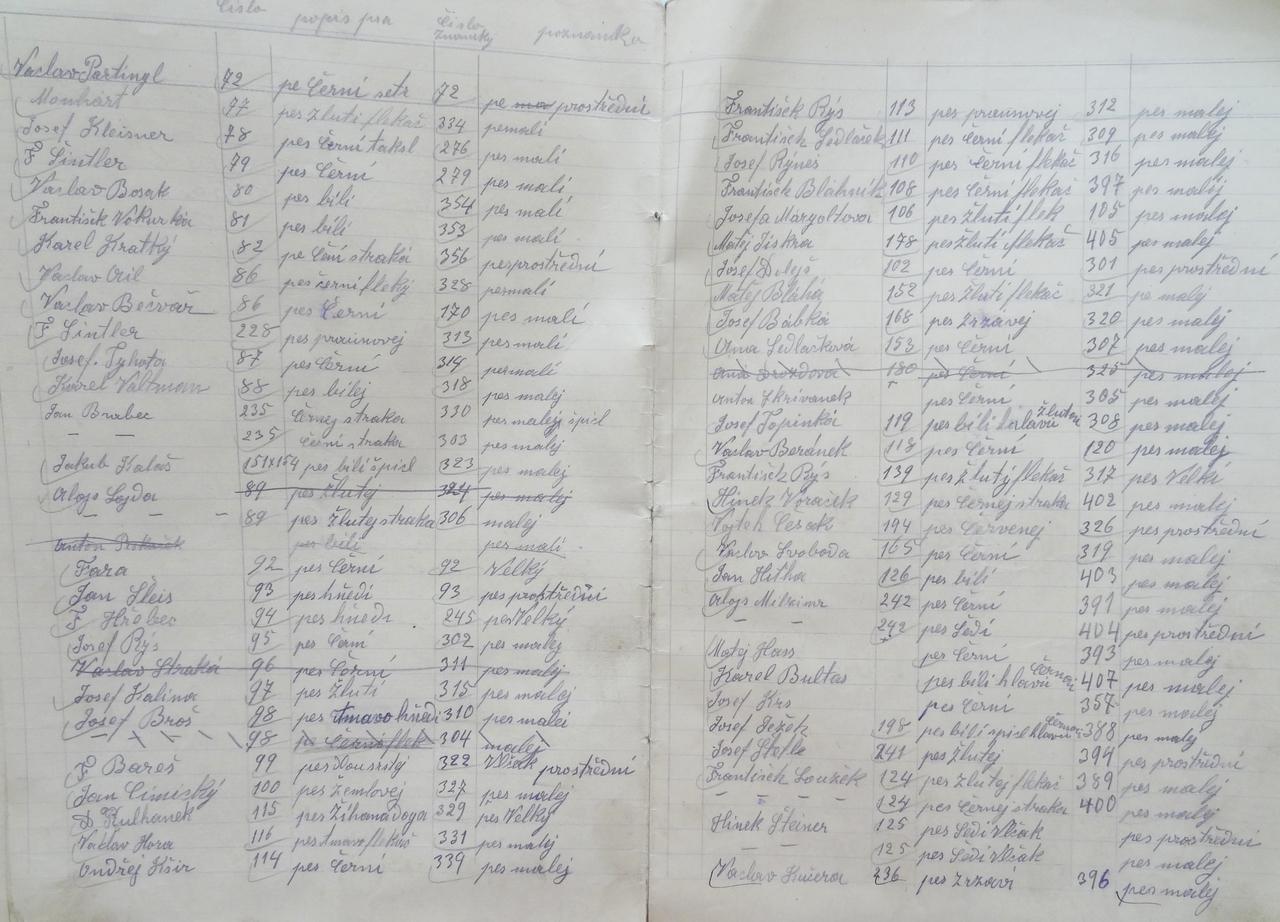 číslo popis psa číslo známky poznámka
Vaclav Partingl 72 pe Černí setr 72 pe prostřední
Monhart 77 pes žlutí flekač 334 pesmalí
Josef Kleisner 78 pes Černí taksl 276 pes malí
F Šintler 79 pes Černí 279 pes malí
Vaclav Bosak 80 pes bílí 354 pes malí
František Vokurka 81 pes bílí 353 pes malí
Karel Kratký 82 pe Čení straká 356 pes prostřední
Vaclav Cril 86 pes černí fleky 328 pesmalí
Vaclav Bečvař 86 pes Černí 170 pes malí
F Šintler 228 pes praunovej 313 pes malí
Josef. Tyhota 87 pes Černí 314 pesmalí
Karel Valtman 88 pes bílej 318 pes malej
Jan Brabec 235 Černej straka 330 pes malej špicl
— — 235 Černí straka 303 pes malej
Jakub Kalaš 151x154 pes bílí špicl 323 pes malej
Alojs Lojda 89 pes žlutej 324 pes malej
— — — 89 pes žlutej straka 306 malej
Anton pes bílí pes malí
Fara 92 pes Černí 92 Velký
Jan Sleis 93 pes hňedí 93 pes prostřední
F Hřebec 94 pes hňedí 245 pes Velký
Josef Rýs 95 pes Černí 302 pes malej
Vaclav Straka 96 pes Černí 311 pes malej
Josef Kalina 97 pes žlutí 315 pes malej
Josef Broš 98 pes tmavo hňedí 310 pes malej
98 pe Černí flek 304 malej
F Bareš 99 pes dlousrstej 322 Vlčak prostřední
Jan Cimický 100 pes žemlovej 327 pes malej
Kulhanek 115 pes žíhaná doga 329 pes Velký
Vaclav Hora 116 pes tmavo flekač 331 pes malej
Ondřej Kšír 114 pes Černí 339 pes malej
František Rýs 113 pes praunovej 312 pes malej
František Sedlaček 111 pes Černí flekač 309 pes malej
Josef Ryneš 110 pes Černí flekač 316 pes malej
František Blahnik 108 pes Černí flekač 397 pes malej
Josefa Margoltova 106 pes žlutí flek 105 pes malej
Matej Jiskra 178 pes žlutí flekač 405 pes malej
Josef Doleš 102 pes Černí 301 pes prostřední
Matej Blaha 152 pes žlutí flekač 321 pe malej
Josef Babka 168 pes Zrzávej 320 pes malej
Anna Sedlačková 153 pes Černí 307 pes malej
Ana Drozdova 180 pes Černí 325 pes malej
Anton Skřivanek pes Černí 305 pes malej
Josef Topinka 119 pes bílí hlavú žlutou 308 pes malej
Vaclav Beránek 118 pes Černí 120 pes malej
František Rýs 139 pes žlutý flekač 317 pes Velkí
Hinek Voraček 129 pes Černej straka 402 pes malej
Vojteh Cesak 194 pes Červenej 326 pes prostřední
Vaclav Svoboda 165 pes Černí 319 pes malej
Jan Hitha 126 pes bílí 403 pes malej
Alojs 242 pes Černí 391 pes malej
— — 242 pes Šedí 404 pes prostřední
Matej Hass pes Černí 393 pes malej
Karel Bultas pes bílí hlavú Černou 407 pes malej
Josef Krs pes Černí 357 pes malej
Josef Ježek 198 pes bílí špicl hlavú Černou 388 pes malej
Josef Stefle 241 pes žlutej 394 pes prostřední
František Loužek 124 pes žlutej flekač 389 pes malej
— — — 124 pes Černej straka 400 pes malej
Hinek Steiner 125 pes Šedí Vlčak pes prostřední
125 pes Šedí Vlčak pes malej
Vaclav 236 pes Zrzaví 396 pes malej